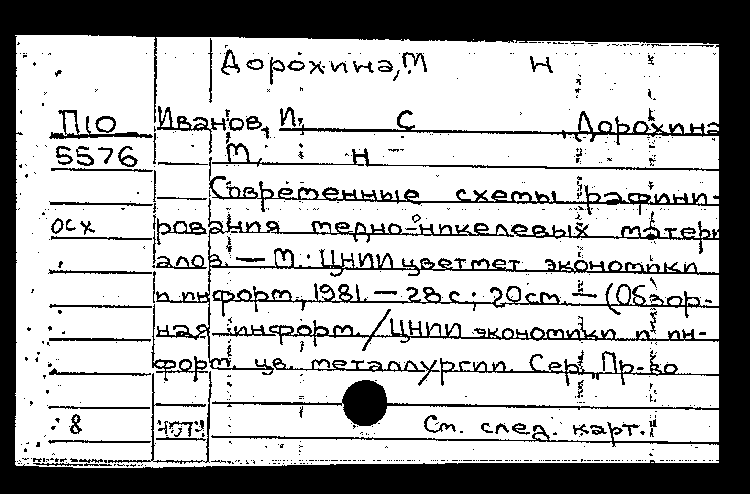 Дорохина, М Н
П10 Иванов, И, С , Дорохина
5576 М, Н
Современные схемы рафини-
осх рования медно-никелевых матери
алов. — М.: ЦНИИцветмет экономики
и информ., 1981. — 28 с; 20 см. — (Обзор-
ная информ./ЦНИИ экономики и ин-
форм. цв. металлургии. Сер. Пр-во
8 См. след. карт.